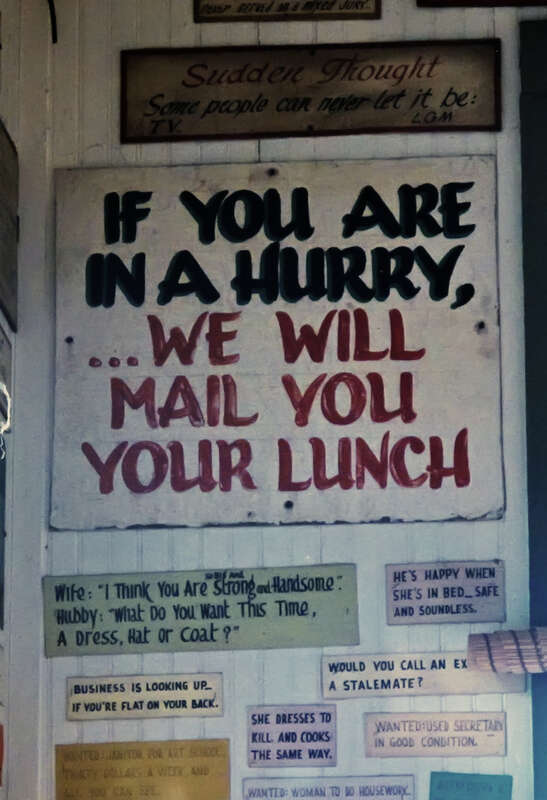 NEVER SERVED ON A MIXED JURY.
Sudden Thought
Some people can never let it be:
TV. LGM
IF YOU ARE
IN A HURRY,
...WE WILL
MAIL YOU
YOUR LUNCH
SO BIG AND
Wife: "I Think You Are Strong and Handsome".
Hubby: "What Do You Want This Time,
A Dress, Hat Or Coat?"
HE'S HAPPY WHEN
SHE'S IN BED_ SAFE
AND SOUNDLESS.
WOULD YOU CALL AN EX
A STALEMATE?
BUSINESS IS LOOKING UP_
IF YOU'RE FLAT ON YOUR BACK.
SHE DRESSES TO
KILL. AND COOKS
THE SAME WAY.
WANTED: USED SECRETARY
IN GOOD CONDITION.
WANTED: JANITOR FOR ART SCHOOL.
THIRTY DOLLARS A WEEK, AND
ALL YOU CAN SEE.
WANTED: WOMAN TO DO HOUSEWORK.